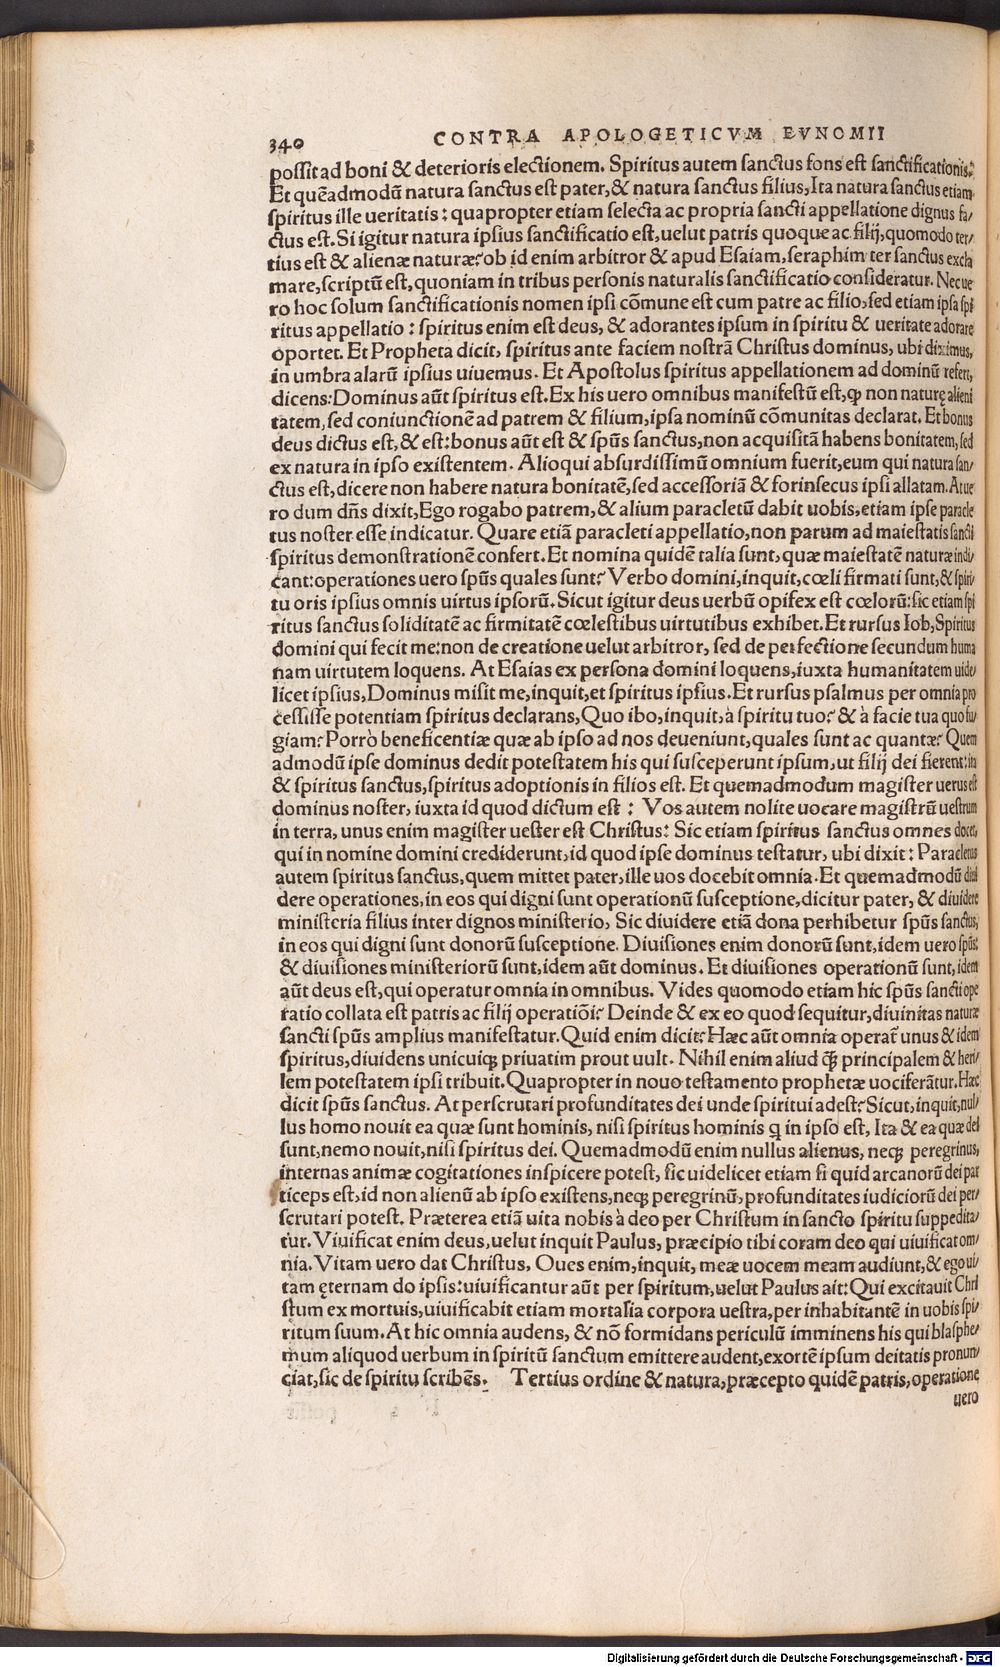 340 CONTRA APOLOGETICVM EVNOMII
possit ad boni & deterioris electionem. Spiritus autem sanctus fons est sanctificationis.
Et quēadmodū natura sanctus est pater, & natura sanctus filius, Ita natura sanctus etiam
spiritus ille ueritatis: quapropter etiam selecta ac propria sancti appellatione dignus fa/
ctus est. Si igitur natura ipsius sanctificatio est, uelut patris quoque ac filij, quomodo ter/
tius est & alienæ naturæ? ob id enim arbitror & apud Esaiam, seraphim ter sanctus excla
mare, scriptū est, quoniam in tribus personis naturalis sanctificatio consideratur. Nec ue
ro hoc solum sanctificationis nomen ipsi cōmune est cum patre ac filio, sed etiam ipsa spi
ritus appellatio: spiritus enim est deus, & adorantes ipsum in spiritu & ueritate adorare
oportet. Et Propheta dicit, spiritus ante faciem nostrā Christus dominus, ubi diximus,
in umbra alarū ipsius uiuemus. Et Apostolus spiritus appellationem ad dominū refert,
dicens: Dominus aūt spiritus est. Ex his uero omnibus manifestū est, ꝙ non naturę alieni
tatem, sed coniunctionē ad patrem & filium, ipsa nominū cōmunitas declarat. Et bonus
deus dictus est, & est: bonus aūt est & spūs sanctus, non acquisitā habens bonitatem, sed
ex natura in ipso existentem. Alioqui absurdissimū omnium fuerit, eum qui natura san/
ctus est, dicere non habere natura bonitatē, sed accessoriā & forinsecus ipsi allatam. At ue
ro dum dñs dixit, Ego rogabo patrem, & alium paracletū dabit uobis, etiam ipse paracle
tus noster esse indicatur. Quare etiā paracleti appellatio, non parum ad maiestatis sancti
spiritus demonstrationē confert. Et nomina quidē talia sunt, quæ maiestatē naturæ indi/
cant: operationes uero spūs quales sunt? Verbo domini, inquit, cœli firmati sunt, & spiri/
tu oris ipsius omnis uirtus ipsorū. Sicut igitur deus uerbū opifex est cœlorū: sic etiam spi
ritus sanctus soliditatē ac firmitatē cœlestibus uirtutibus exhibet. Et rursus Iob, Spiritus
domini qui fecit me: non de creatione uelut arbitror, sed de perfectione secundum huma
nam uirtutem loquens. At Esaias ex persona domini loquens, iuxta humanitatem uide/
licet ipsius, Dominus misit me, inquit, et spiritus ipsius. Et rursus psalmus per omnia pro
cessisse potentiam spiritus declarans, Quo ibo, inquit, à spiritu tuo? & à facie tua quo fu/
giam? Porrò beneficentiæ quæ ab ipso ad nos deueniunt, quales sunt ac quantæ? Quem
admodū ipse dominus dedit potestatem his qui susceperunt ipsum, ut filij dei fierent: ita
& spiritus sanctus, spiritus adoptionis in filios est. Et quemadmodum magister uerus est
dominus noster, iuxta id quod dictum est: Vos autem nolite uocare magistrū uestrum
in terra, unus enim magister uester est Christus: Sic etiam spiritus sanctus omnes docet,
qui in nomine domini crediderunt, id quod ipse dominus testatur, ubi dixit: Paracletus
autem spiritus sanctus, quem mittet pater, ille uos docebit omnia. Et quemadmodū diui
dere operationes, in eos qui digni sunt operationū susceptione, dicitur pater, & diuidere
ministeria filius inter dignos ministerio, Sic diuidere etiā dona perhibetur spūs sanctus,
in eos qui digni sunt donorū susceptione. Diuisiones enim donorū sunt, idem uero spūs:
& diuisiones ministeriorū sunt, idem aūt dominus. Et diuisiones operationū sunt, idem
aūt deus est, qui operatur omnia in omnibus. Vides quomodo etiam hic spūs sancti ope
ratio collata est patris ac filij operatiōi? Deinde & ex eo quod sequitur, diuinitas naturæ
sancti spūs amplius manifestatur. Quid enim dicit? Hæc aūt omnia operat̃ unus & idem
spiritus, diuidens unicuiqꝫ priuatim prout uult. Nihil enim aliud ꝙ̃ principalem & heri/
lem potestatem ipsi tribuit. Quapropter in nouo testamento prophetæ uociferātur. Hæc
dicit spūs sanctus. At perscrutari profunditates dei unde spiritui adest? Sicut, inquit, nul/
lus homo nouit ea quæ sunt hominis, nisi spiritus hominis q̃ in ipso est, Ita & ea quæ dei
sunt, nemo nouit, nisi spiritus dei. Quemadmodū enim nullus alienus, neqꝫ peregrinus,
internas animæ cogitationes inspicere potest, sic uidelicet etiam si quid arcanorū dei par
ticeps est, id non alienū ab ipso existens, neqꝫ peregrinū, profunditates iudiciorū dei per/
scrutari potest. Præterea etiā uita nobis à deo per Christum in sancto spiritu suppedita/
tur. Viuificat enim deus, uelut inquit Paulus, præcipio tibi coram deo qui uiuificat om/
nia. Vitam uero dat Christus, Oues enim, inquit, meæ uocem meam audiunt, & ego ui/
tam ęternam do ipsis: uiuificantur aūt per spiritum, uelut Paulus ait: Qui excitauit Chri
stum ex mortuis, uiuificabit etiam mortalia corpora uestra, per inhabitantē in uobis spi/
ritum suum. At hic omnia audens, & nō formidans periculū imminens his qui blasphe/
mum aliquod uerbum in spiritū sanctum emittere audent, exortē ipsum deitatis pronun/
ciat, sic de spiritu scribēs. Tertius ordine & natura, præcepto quidē patris, operatione
uero
Digitalisierung gefördert durch die Deutsche Forschungsgemeinschaft - DFG